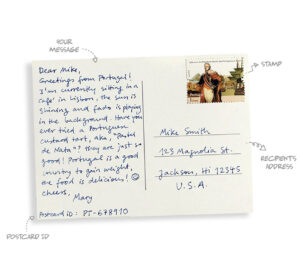 YOUR
MESSAGE
STAMP
Dear Mike,
Greetings from Portugal!
I'm currently sitting in a
café in Lisbon, the sun is
shining and fado is playing
in the background. Have you
ever tried a Portuguese
custard tart, aka, "Pastel
de Nata"? They are just so
good! Portugal is a good
country to gain weight,
the food is delicious! ☺
Cheers,
Mary
Postcard ID: PT-678910
Mike Smith
123 Magnolia St.
Jackson, HI 12345
U.S.A.
RECIPIENT'S
ADDRESS
POSTCARD ID